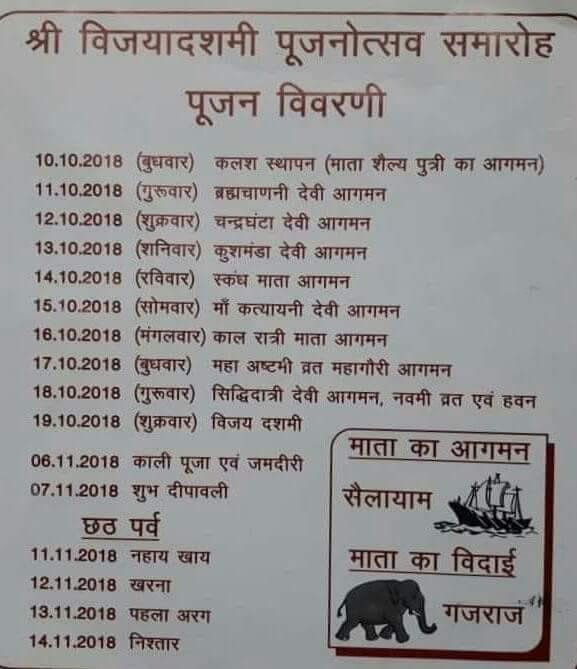 श्री विजयादशमी पूजनोत्सव समारोह
पूजन विवरणी
10.10.2018 (बुधवार) कलश स्थापन (माता शैल्य पुत्री का आगमन)
11.10.2018 (गुरूवार) ब्रह्मचाणनी देवी आगमन
12.10.2018 (शुक्रवार) चन्द्रघंटा देवी आगमन
13.10.2018 (शनिवार) कुशमंडा देवी आगमन
14.10.2018 (रविवार) स्कंध माता आगमन
15.10.2018 (सोमवार) माँ कत्यायनी देवी आगमन
16.10.2018 (मंगलवार) काल रात्री माता आगमन
17.10.2018 (बुधवार) महा अष्टमी व्रत महागौरी आगमन
18.10.2018 (गुरूवार) सिद्धिदात्री देवी आगमन, नवमी व्रत एवं हवन
19.10.2018 (शुक्रवार) विजय दशमी
06.11.2018 काली पूजा एवं जमदीरी
07.11.2018 शुभ दीपावली
छठ पर्व
11.11.2018 नहाय खाय
12.11.2018 खरना
13.11.2018 पहला अरग
14.11.2018 निश्तार
माता का आगमन
सैलायाम
माता का विदाई
गजराज